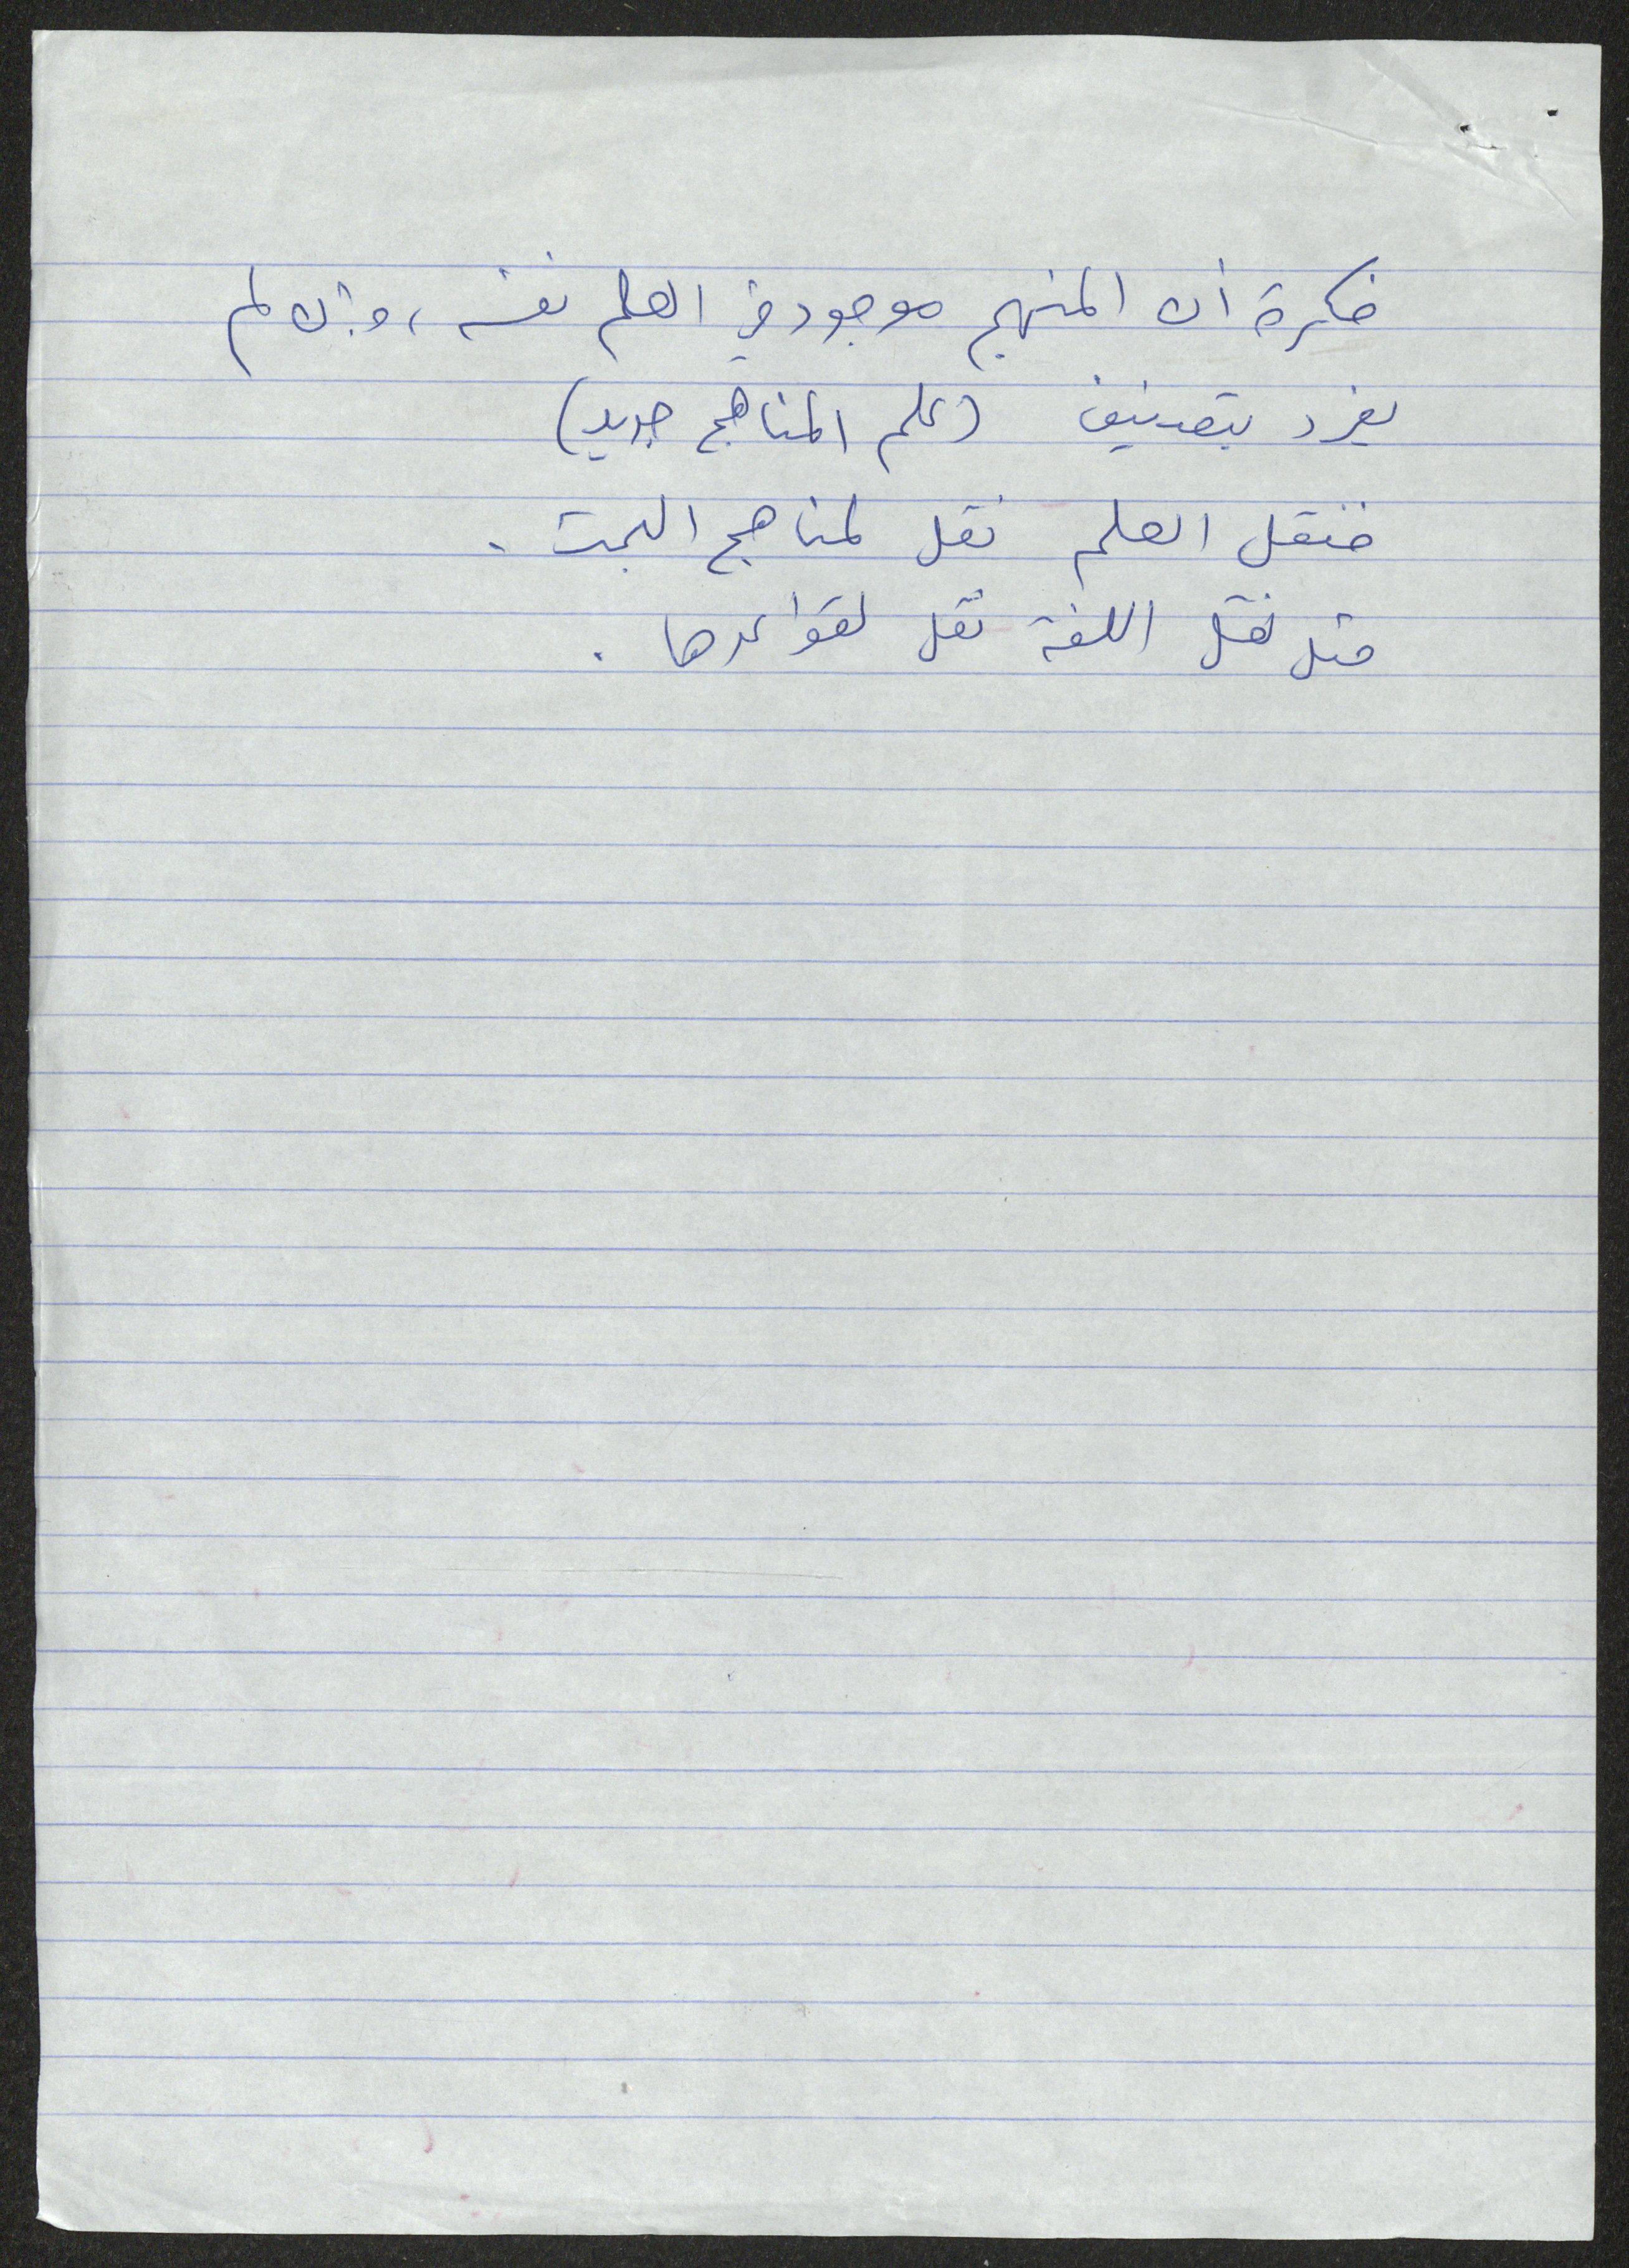 فكرة أن المنهج موجود في العلم نفسه، وإن لم
يفرد بتصنيف (علم المناهج جديد)
فنقل العلم نقل لمناهج البحث.
مثل نقل اللغة نقل لقواعدها.